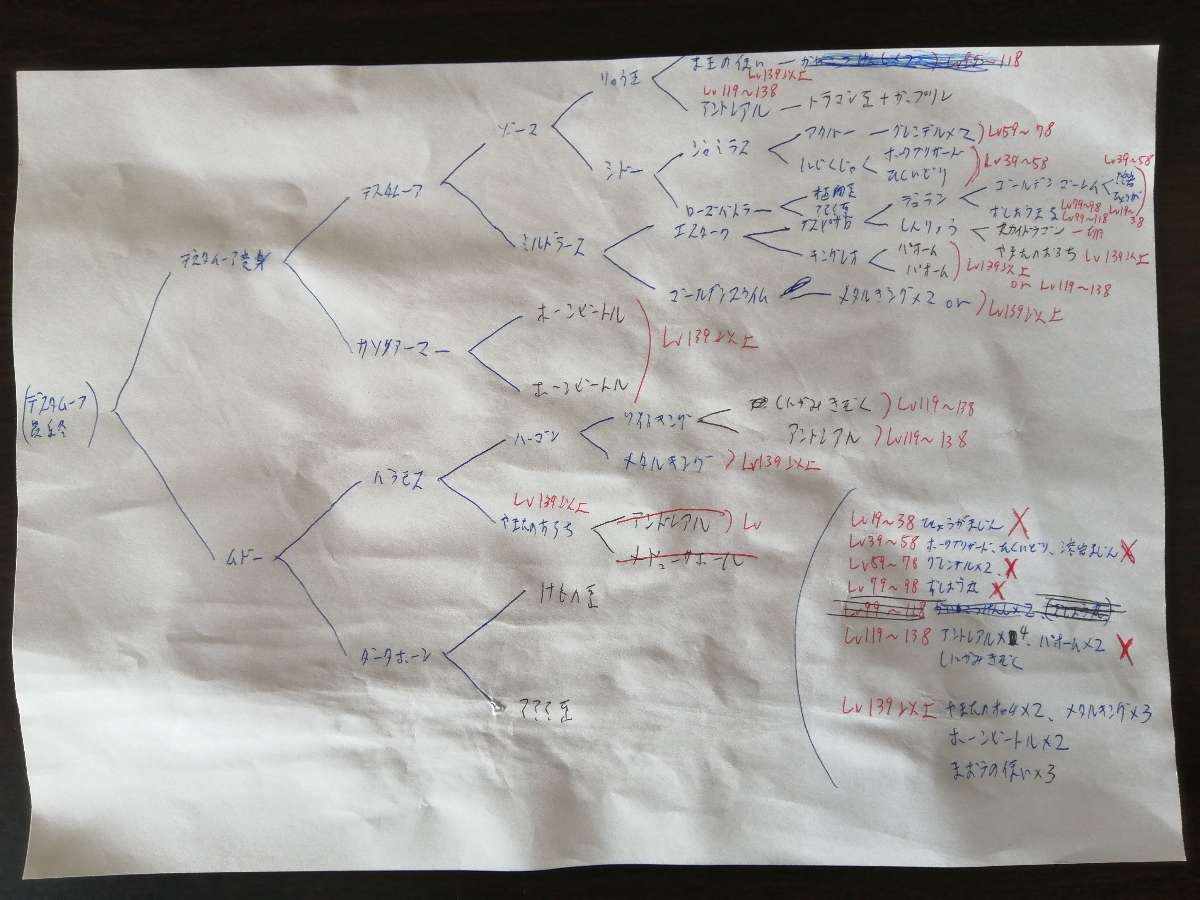 (デスタムーア
最終)
デスタムーア変身
ムドー
デスタムーア
ガンダアーマー
バラモス
ダークホーン
ゾーマ
ミルドラース
ホーンビートル
ホーンビートル
Lv139以上
ハーゴン
Lv139以上
やまたのおろち
けもの王
ママミ王
りゅう王
シドー
エスターク
ゴールデンスライム
まおうの使い
Lv139以上
Lv119〜138
アンドレアル ー ドラゴン王+ガップリン
ジャミラス
ローズバトラー
アクバー ー グレンデル×2 )Lv59〜78
にじくじゃく
ホークブリザード
ひくいどり
)Lv39〜58
植物王
ママミ王
キングレオ
デュラン
しんりゅう
ゴールデンゴーレム
Lv39〜58
Lv79〜98
Lv99〜118
Lv19〜38
スカイドラゴン
やまたのおろち Lv139以上
バオーム
バオーム
)Lv139以上
or Lv119〜138
メタルキング×2 or )Lv139以上
ワイトキング
しにがみきぞく )Lv119〜138
アンドレアル )Lv119〜138
メタルキング )Lv139以上
アンドレアル )Lv
メドューサボール
Lv19〜38 ひょうがまじん X
Lv39〜58 ホークブリザード、ひくいどり、溶岩まじん X
Lv59〜78 グレンデル×2、X
Lv79〜98 おしょう丸 X
Lv99〜118
Lv119〜138 アンドレアル×4、バオーム×2 X
しにがみきぞく
Lv139以上 やまたのおろち×2、メタルキング×3
ホーンビートル×2
まおうの使い×3